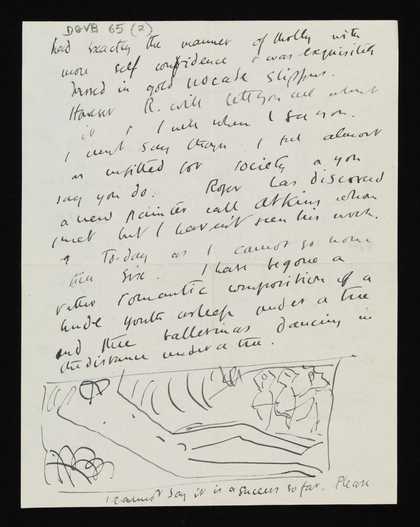 DGVB 65 (2)
had exactly the manner of Molly with
more self confidence & was exquisitely
dressed in gold brocade slippers.
However R. will tell you all about
it & I will when I see you.
I must say though I feel almost
as unfitted for society as you
say you do. Roger has discovered
a new painter call Atkins whom
I met but I haven't seen his work.
To-day as I cannot go home
till six. I have begone a
rather romantic composition of a
nude youth asleep under a tree
and three ballerinas dancing in
the distance under a tree.
I cannot say it is a success so far. Please